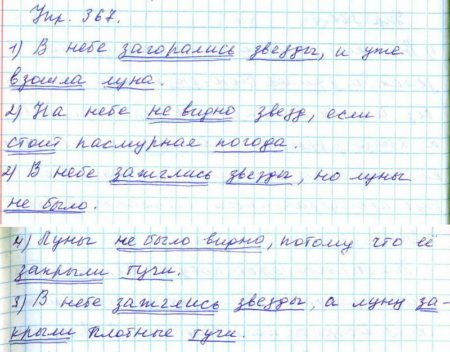 Упр. 367.
1) В небе загорались звезды, и уже
взошла луна.
2) На небе не видно звезд, если
стоит пасмурная погода.
2) В небе зажглись звезды, но луны
не было.
4) Луны не было видно, потому что её
закрыли тучи.
3) В небе зажглись звезды, а луну за-
крыли плотные тучи.